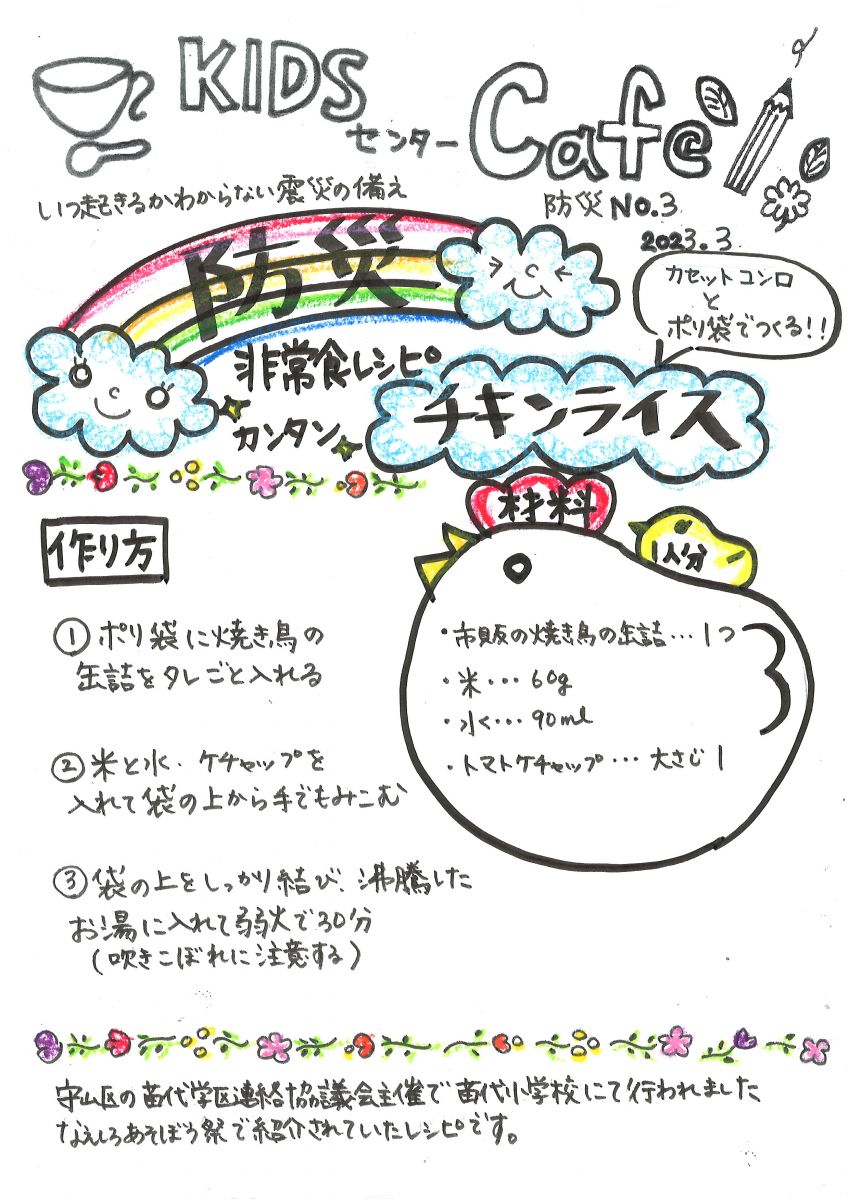 KIDS
センター Cafe
いつ起きるかわからない震災の備え
防災 NO.3
2023.3
防災
非常食レシピ
カンタン
カセットコンロ
と
ポリ袋でつくる!!
チキンライス
材料
1人分
・市販の焼き鳥の缶詰…1つ
・米…60g
・水…90ml
・トマトケチャップ…大さじ1
作り方
①ポリ袋に焼き鳥の
缶詰をタレごと入れる
②米と水、ケチャップを
入れて袋の上から手でもみこむ
③袋の上をしっかり結び、沸騰した
お湯に入れて弱火で30分
(吹きこぼれに注意する)
守山区の苗代学区連絡協議会主催で苗代小学校にて行われました
なえしろあそぼう祭で紹介されていたレシピです。